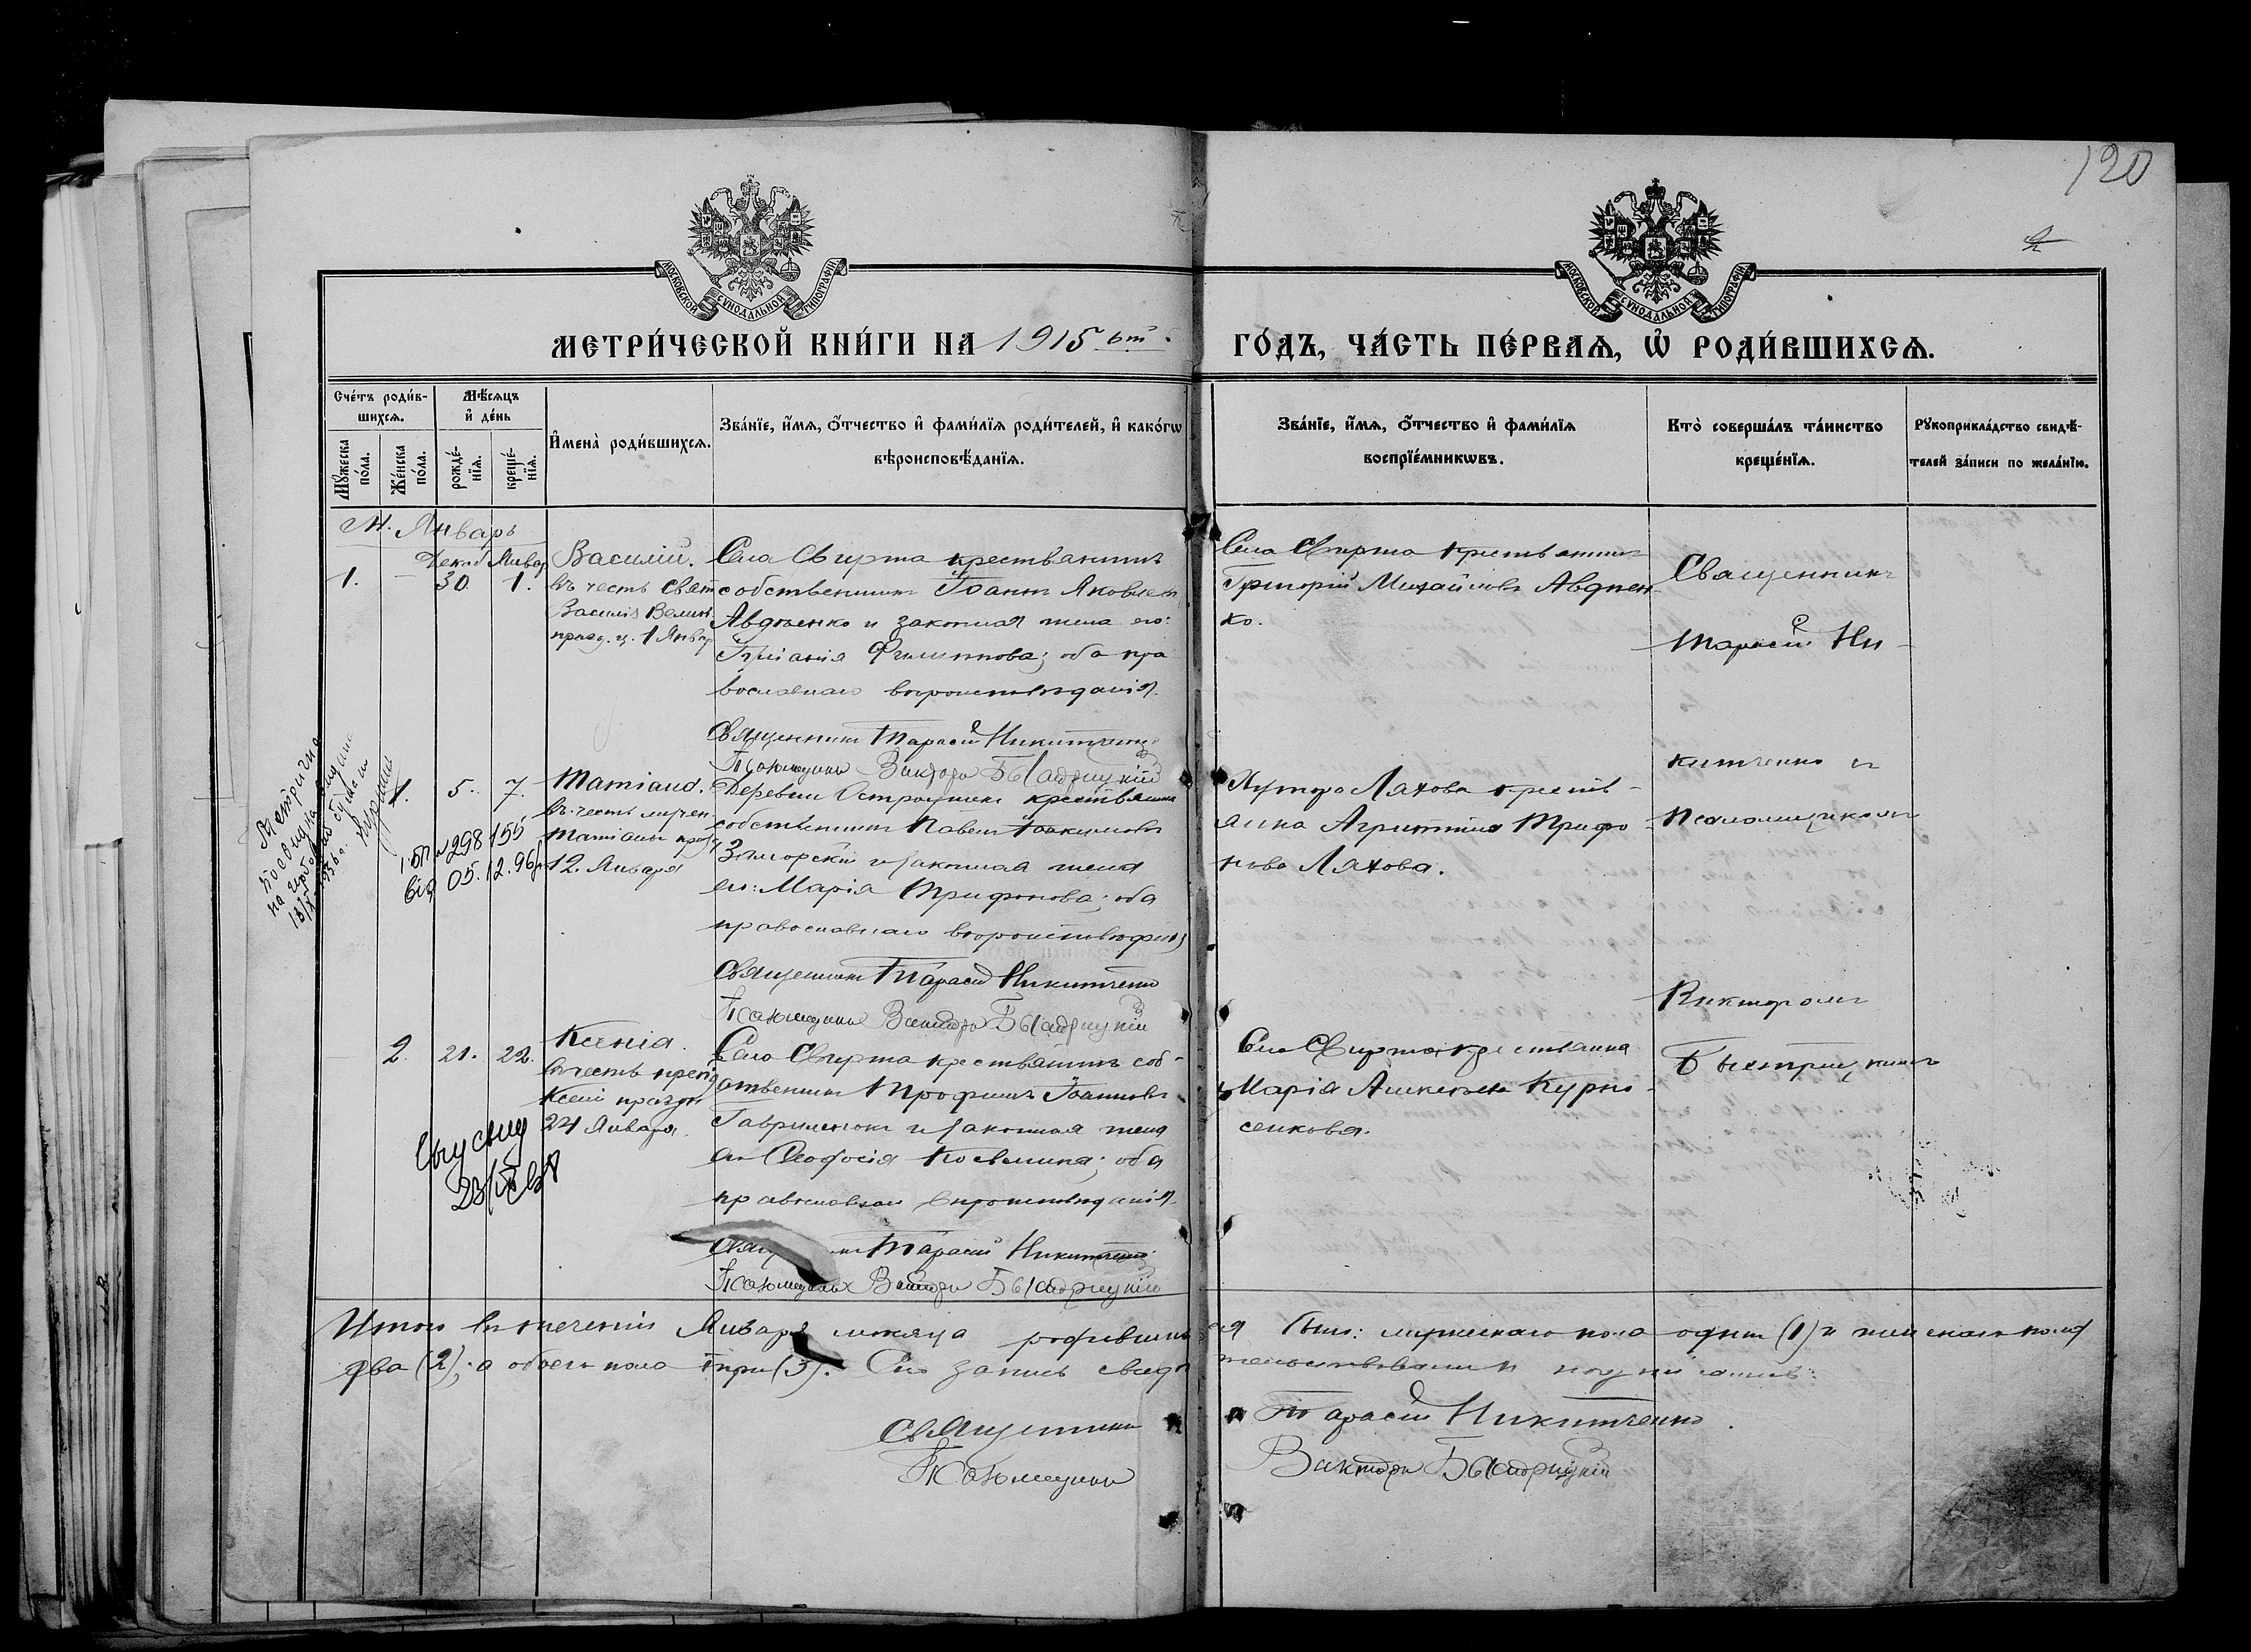 120
МОСКОВСКОЙ СѴНОДАЛЬНОЙ ТИПОГРАФІИ
МОСКОВСКОЙ СѴНОДАЛЬНОЙ ТИПОГРАФІИ
МЕТРИ́ЧЕСКОЙ КНИ́ГИ НА 1915 ый
ГО́ДЪ, ЧА́СТЬ ПЕ́РВАѦ, Ѡ҆ РОДИ́ВШИХСѦ.
Сче́тъ роди́в-
шихсѧ.
Мѣ́сѧцъ
и҆ де́нь
Мꙋ́жеска
по́ла.
Же́нска
по́ла.
рожде́-
нїѧ.
креще́-
нїѧ.
И҆мена̀ роди́вшихсѧ.
Зва́нїе, и҆́мѧ, ѻ҆́тчество и҆ фами́лїѧ роди́телей, и҆ како́гѡ
вѣроисповѣ́данїѧ.
Зва́нїе, и҆́мѧ, ѻ҆́тчество и҆ фами́лїѧ
воспрїе́мникѡвъ.
Кто̀ соверша́лъ та́инство
креще́нїѧ.
Рꙋкоприкла́дство свидѣ́-
телей за́писи по жела́нїю.
М. Январь
Декаб Январ
1. — 30. 1.
Василій.
въ честь Свят
Василія Велик.
празд. 1 Январ
Села Свирта крестьянинъ
собственникъ Іоаннъ Яковлевъ
Авдѣенко и законная жена его:
Филиппова; оба пра
вославнаго вѣроисповѣданія.
Священникъ Тарасій Никитченко
Псаломщикъ Викторъ Быстрицкій
Села Свирта крестьянинъ
Григорій Михайловъ Авдѣен-
ко.
Священникъ
Тарасій Ни-
китченко и
Псаломщикомъ
Викторомъ
Быстрицкимъ
1. 5. 7.
Татіана.
въ честь мучен.
Татіаны празд
12. Января
Деревни крестьянинъ
собственникъ Павелъ Іоакимовъ
Заморскій и законная жена
его: Марія Трифонова; оба
православнаго вѣроисповѣданія
Священникъ Тарасій Никитченко
Псаломщикъ Викторъ Быстрицкій
Хутора Ляхова крестья-
янка Агриппина Трифо-
нова Ляхова.
298 155
від 05.12.96
2. 21. 22.
Ксенія.
въ честь преп
Ксеніи праздн
24 Января.
Села Свирта крестьянинъ соб-
ственникъ Трофимъ Іоанновъ
Гавриленко и законная жена
его Ѳеодосія Косьмина; оба
православнаго вѣроисповѣданія.
Тарасій Никитченко
Псаломщикъ Викторъ Быстрицкій
Села Свирта крестьянка
Марія Алексѣева
Итого въ теченіи Января мѣсяца родившихся было: мужескаго пола одинъ (1) и женскаго пола
два (2); а обоего пола три (3). Сію запись свидѣтельствовали и подписали:
Священникъ Тарасій Никитченко.
Псаломщикъ Викторъ Быстрицкій